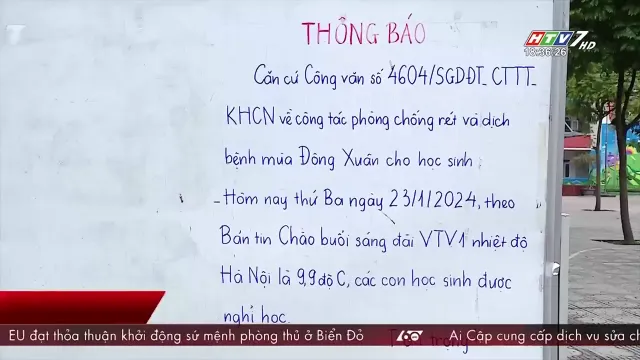 HTV7 HD
18:36:26
THÔNG BÁO
Căn cứ Công văn số 4604/SGDĐT_CTTT_
KHCN về công tác phòng chống rét và dịch
bệnh mùa Đông Xuân cho học sinh
- Hôm nay thứ Ba ngày 23/1/2024, theo
Bản tin Chào buổi sáng đài VTV1 nhiệt độ
Hà Nội là 9,9 độ C, các con học sinh được
nghỉ học.
Trân trọng
EU đạt thỏa thuận khởi động sứ mệnh phòng thủ ở Biển Đỏ
60
Ai Cập cung cấp dịch vụ sửa ch